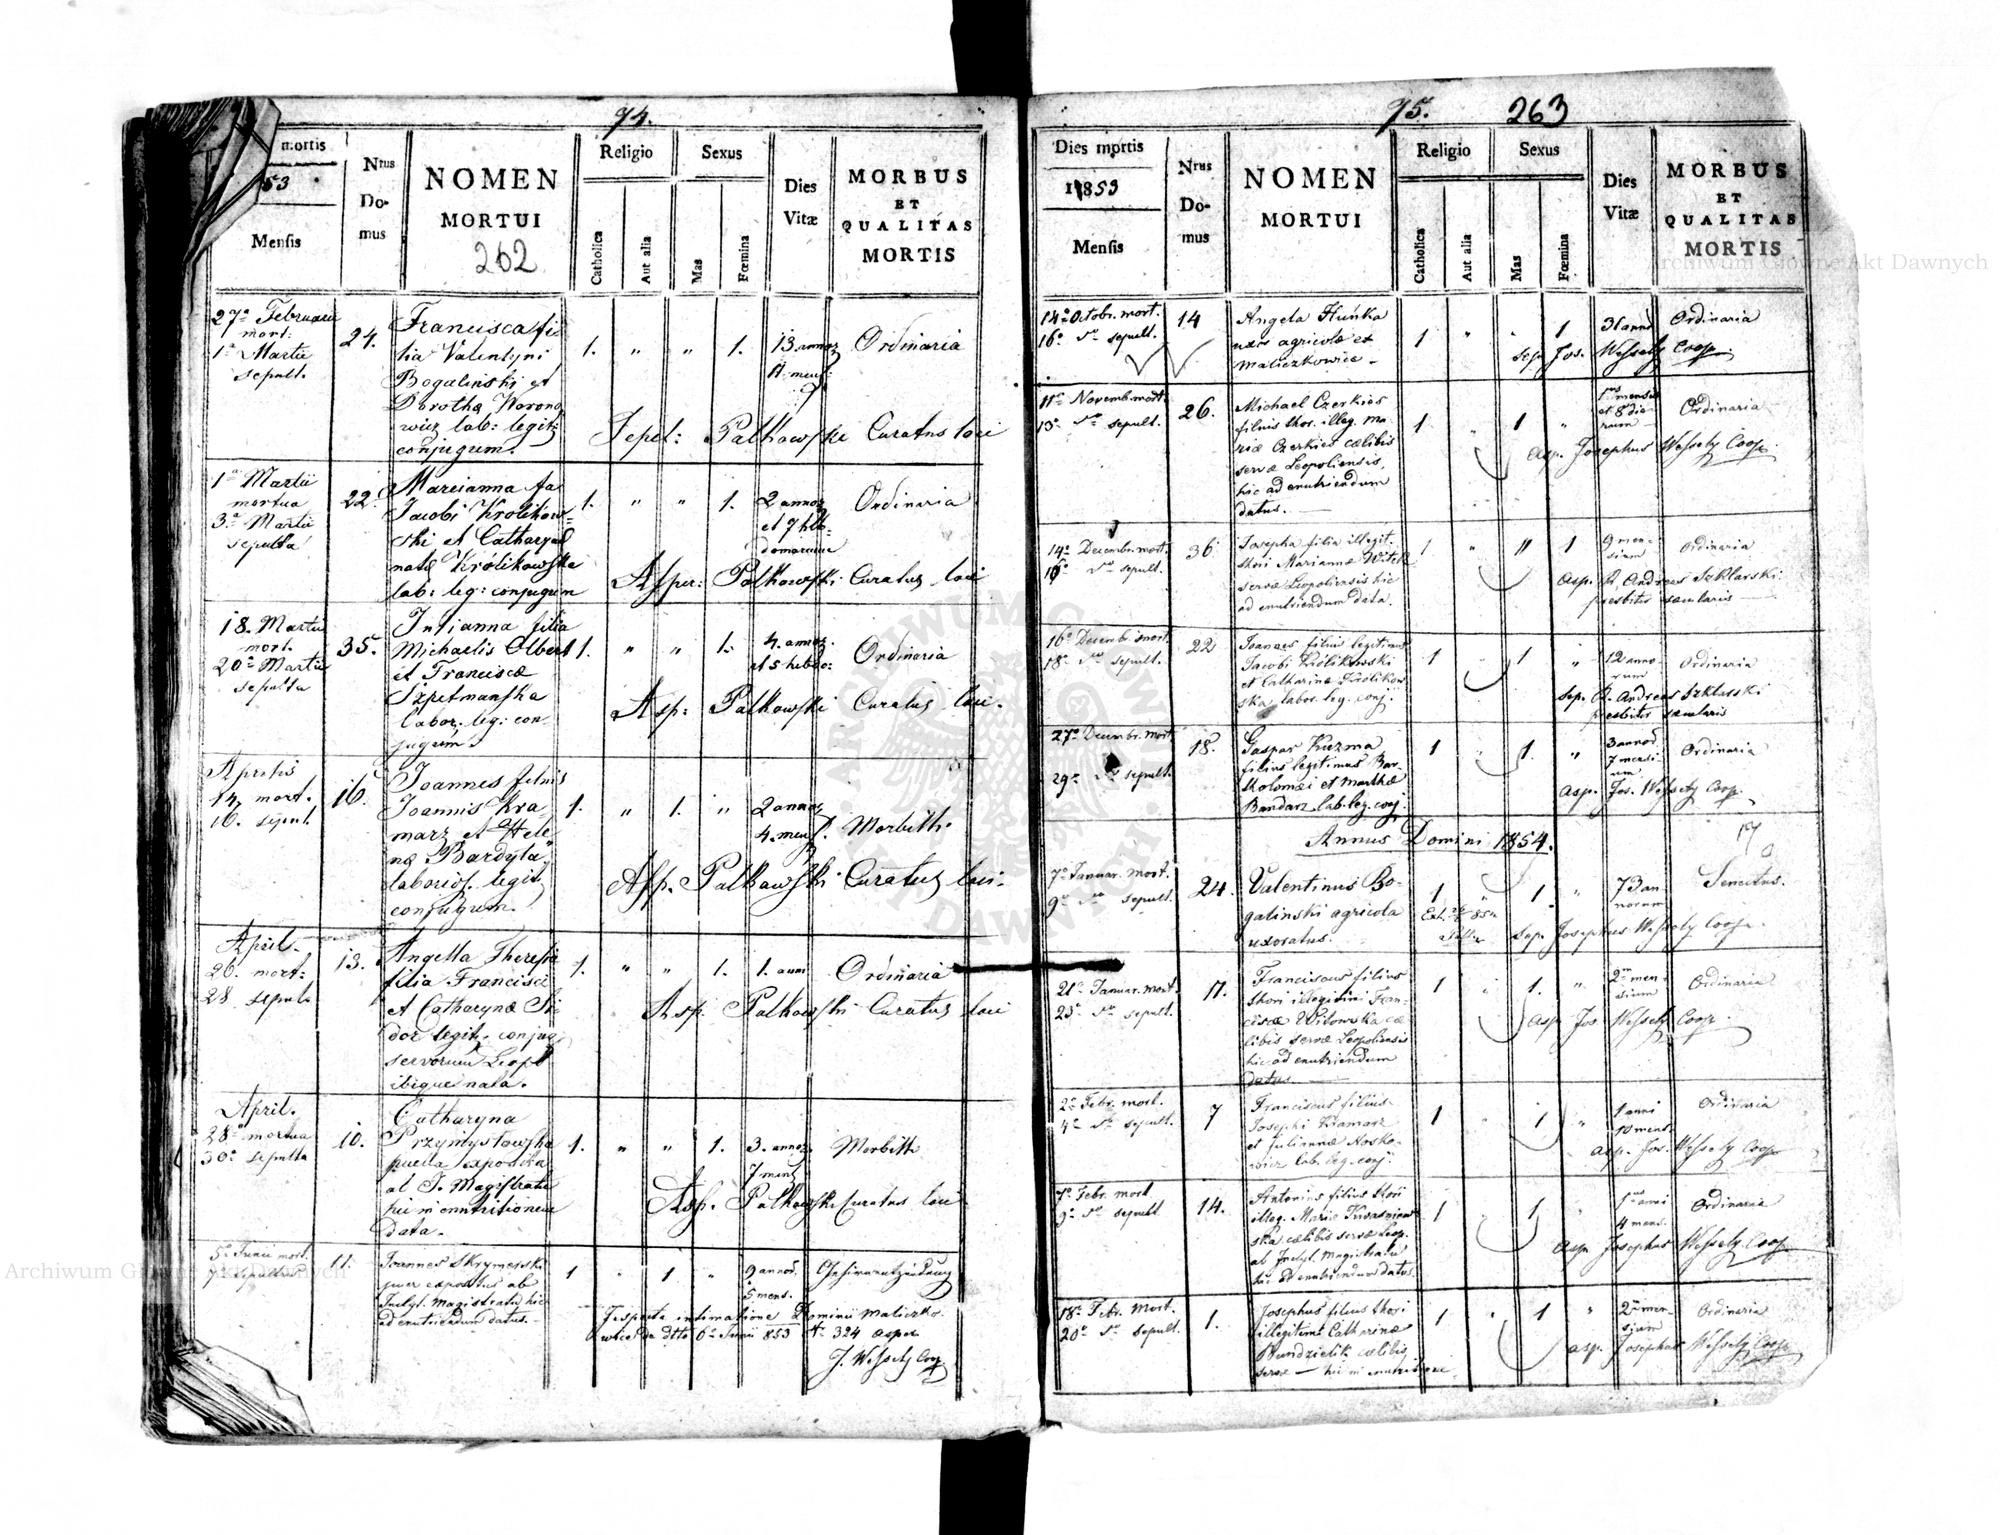 74.
mortis
53
Mensis
Nrus
Do-
mus
NOMEN
MORTUI
262
Religio
Catholica
Aut alia
Sexus
Mas
Fœmina
Dies
Vitæ
MORBUS
ET
QUALITAS
MORTIS
27a Februarii
mort:
1a Martii
sepult.
24.
Francisca fi
lia Valentyni
Bogalinski et
Dorothæ Worono
wicz lab: legit:
conjugum.
1. " " 1.
13. annor
11 mens
Ordinaria
Sepel: Palkowski Curatus loci
1a Martii
mortua
3a Martii
sepulta
22.
Marcianna fa
Jacobi Krolikow-
ski et Catharyna
nata Królikowska
lab: leg: conjugum
1. " " 1.
2 annor
et 7 heb-
domarum
Ordinaria
Asper: Palkowski Curatus loci
18. Martii
mort.
20a Martii
sepulta
35.
Julianna filia
Michaelis Olbert
et Franciscæ
Szpetmanska
labor. leg: con
jugum
1. " " 1.
4. annor
et 5 hebdo:
Ordinaria
Asp: Palkowski Curatus loci.
Aprilis
14. mort.
16. sepul.
16.
Joannes filius
Joannis Kra
marz et Hele
næ Bardyla
laborios. legit
conjugum.
1. " 1. "
2 annor
4. mens.
Morbilli.
Asp. Palkowski Curatus loci.
April.
26. mort:
28 sepul.
13.
Angella Theresia
filia Francisci
et Catharynæ Si
dor legit. conjug
servorum Leopol
ibique nata.
1. " " 1.
1. anni
Ordinaria
Asp. Palkowski Curatus loci
April.
28a mortua
30a sepulta
10.
Catharyna
Przymysłowska
puella exposita
ab I. Magistratu
hic in enutritionem
data.
1. " " 1.
3. annor.
7 mens
Morbilli
Asp. Palkowski Curatus loci
5a Junii mort.
7a sepultus
11.
Joannes Skrymesski
puer expositus ab
Inclyt. Magistratu hic
ad enutriendum datus.
1 " 1 "
9 annor.
5 mens.
Gehirnentzündung
Respecta intimatione Dominii Maliczko-
wice de dtto 6a Junii 853 N. 324 asper
J. Wessely Coop
75. 263
Dies mortis
1853
Mensis
Nrus
Do-
mus
NOMEN
MORTUI
Religio
Catholica
Aut alia
Sexus
Mas
Fœmina
Dies
Vitæ
MORBUS
ET
QUALITAS
MORTIS
14a Octobr. mort.
16a sepult.
14
Angela Huńka
uxor agricolæ ex
Maliczkowice
1 " " 1
31 annor
Ordinaria
Sep. Jos. Wessely Coop.
11a Novemb. mort.
13a sepult.
26.
Michael Czerkies
filius thor. illeg. Ma
riæ Czerkies cælibis
servæ Leopoliensis,
hic ad enutriendum
datus.
1 " 1 "
mensis
et 8 die-
rum
Ordinaria
Asp. Josephus Wessely Coop.
14a Decembr. mort.
16a sepult.
36
Josepha filia illegit.
thori Mariannæ Witek
servæ Leopoliensis hic
ad enutriendum data.
1 " " 1
9 men-
sium
Ordinaria
Asp. R. Andreas Szklarski
presbiter sæcularis
16a Decembr. mort.
18a sepult.
22
Joannes filius legitimus
Jacobi Królikowski
et Catharinæ Królikow
ska labor. leg. conj.
1 " 1 "
12 anno
rum
Ordinaria
Sep. R. Andreas Szklarski
presbiter sæcularis
27a Decembr. mort.
29a sepult.
18.
Gaspar Kuzma
filius legitimus Bar-
tholomæi et Marthæ
Bandarz lab. leg. conj.
1 " 1. "
3 annor.
7 mensi
um
Ordinaria
Asp. Jos. Wessely Coop.
Annus Domini 1854.
7a Januar. mort.
9a sepult.
24.
Valentinus Bo-
galinski agricola
uxoratus.
1 " 1. "
73 an
norum
Senectus.
Sep. Josephus Wessely Coop.
21a Januar. mort.
23a sepult.
17.
Franciscus filius
thori illegitimi Fran-
ciscæ Witowska cæ
libis servæ Leopoliensis
hic ad enutriendum
datus.
1 " 1. "
2 men-
sium
Ordinaria
Asp. Jos Wessely Coop.
2a Febr. mort.
4a sepult.
7
Franciscus filius
Josephi Kramarz
et Juliannæ Nosko-
wicz lab. leg. conj.
1 " 1 "
1 anni
10 mens.
Ordinaria
Asp. Jos. Wessely Coop.
7a Febr. mort
9a sepult
14.
Antonius filius thori
illeg. Mariæ
ska cælibis servæ Leop.
ab Inclyt. Magistratu
hic ad enutriendum datus.
1 " 1 "
1 anni
4 mens.
Ordinaria
Asp. Josephus Wessely Coop.
18a Febr. mort.
20a sepult.
1.
Josephus filius thori
illegitimi Catharinæ
cælibis
servæ — hic in enutritione
1 " 1 "
2 men-
sium
Ordinaria
Asp. Josephus Wessely Coop.
Archiwum Główne Akt Dawnych
Archiwum Główne Akt Dawnych
ARCHIWUM GŁÓWNE AKT DAWNYCH